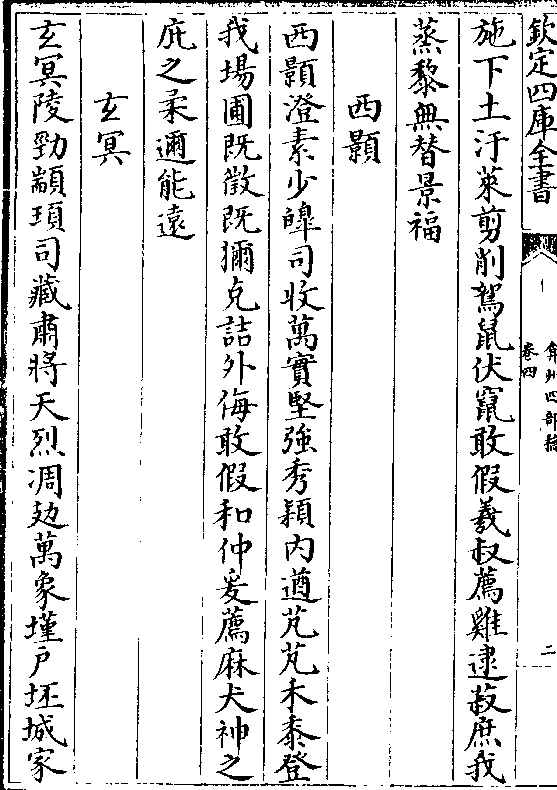 欽定四庫全書
弇州四部稿
卷四
二
施下土汙萊剪削駕鼠伏竄敢假羲叔薦雞逮菽庶我
蒸黎無替景福
西顥
西顥澄素少皥司收萬實堅強秀穎内遒芃芃禾黍登
我場圃既徵既獮克詰外侮敢假和仲爰薦麻犬神之
庇之柔邇能遠
玄冥
玄冥陵勁顓頊司藏肅將天烈凋勊萬象墐户坯城家